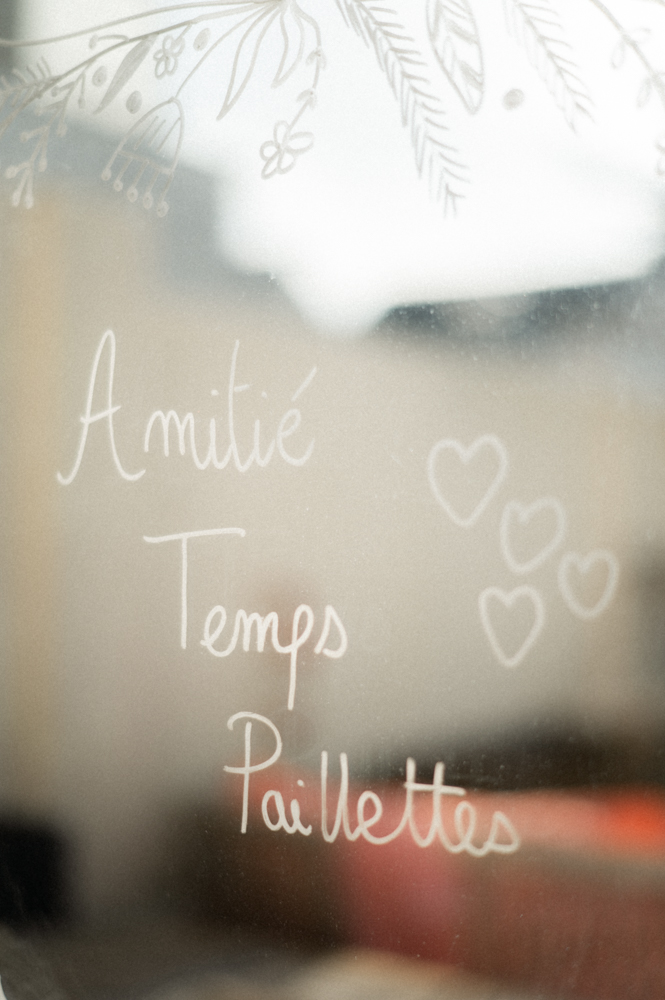 Amitié
Temps
Paillettes